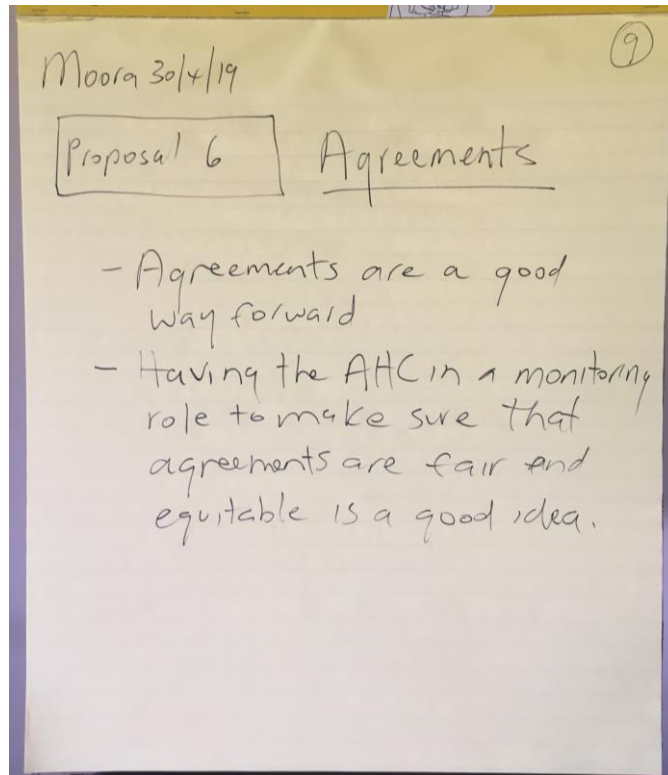 9
Moora 30/4/19
Proposal 6 Agreements
- Agreements are a good
way forward
- Having the AHC in a monitoring
role to make sure that
agreements are fair and
equitable is a good idea.